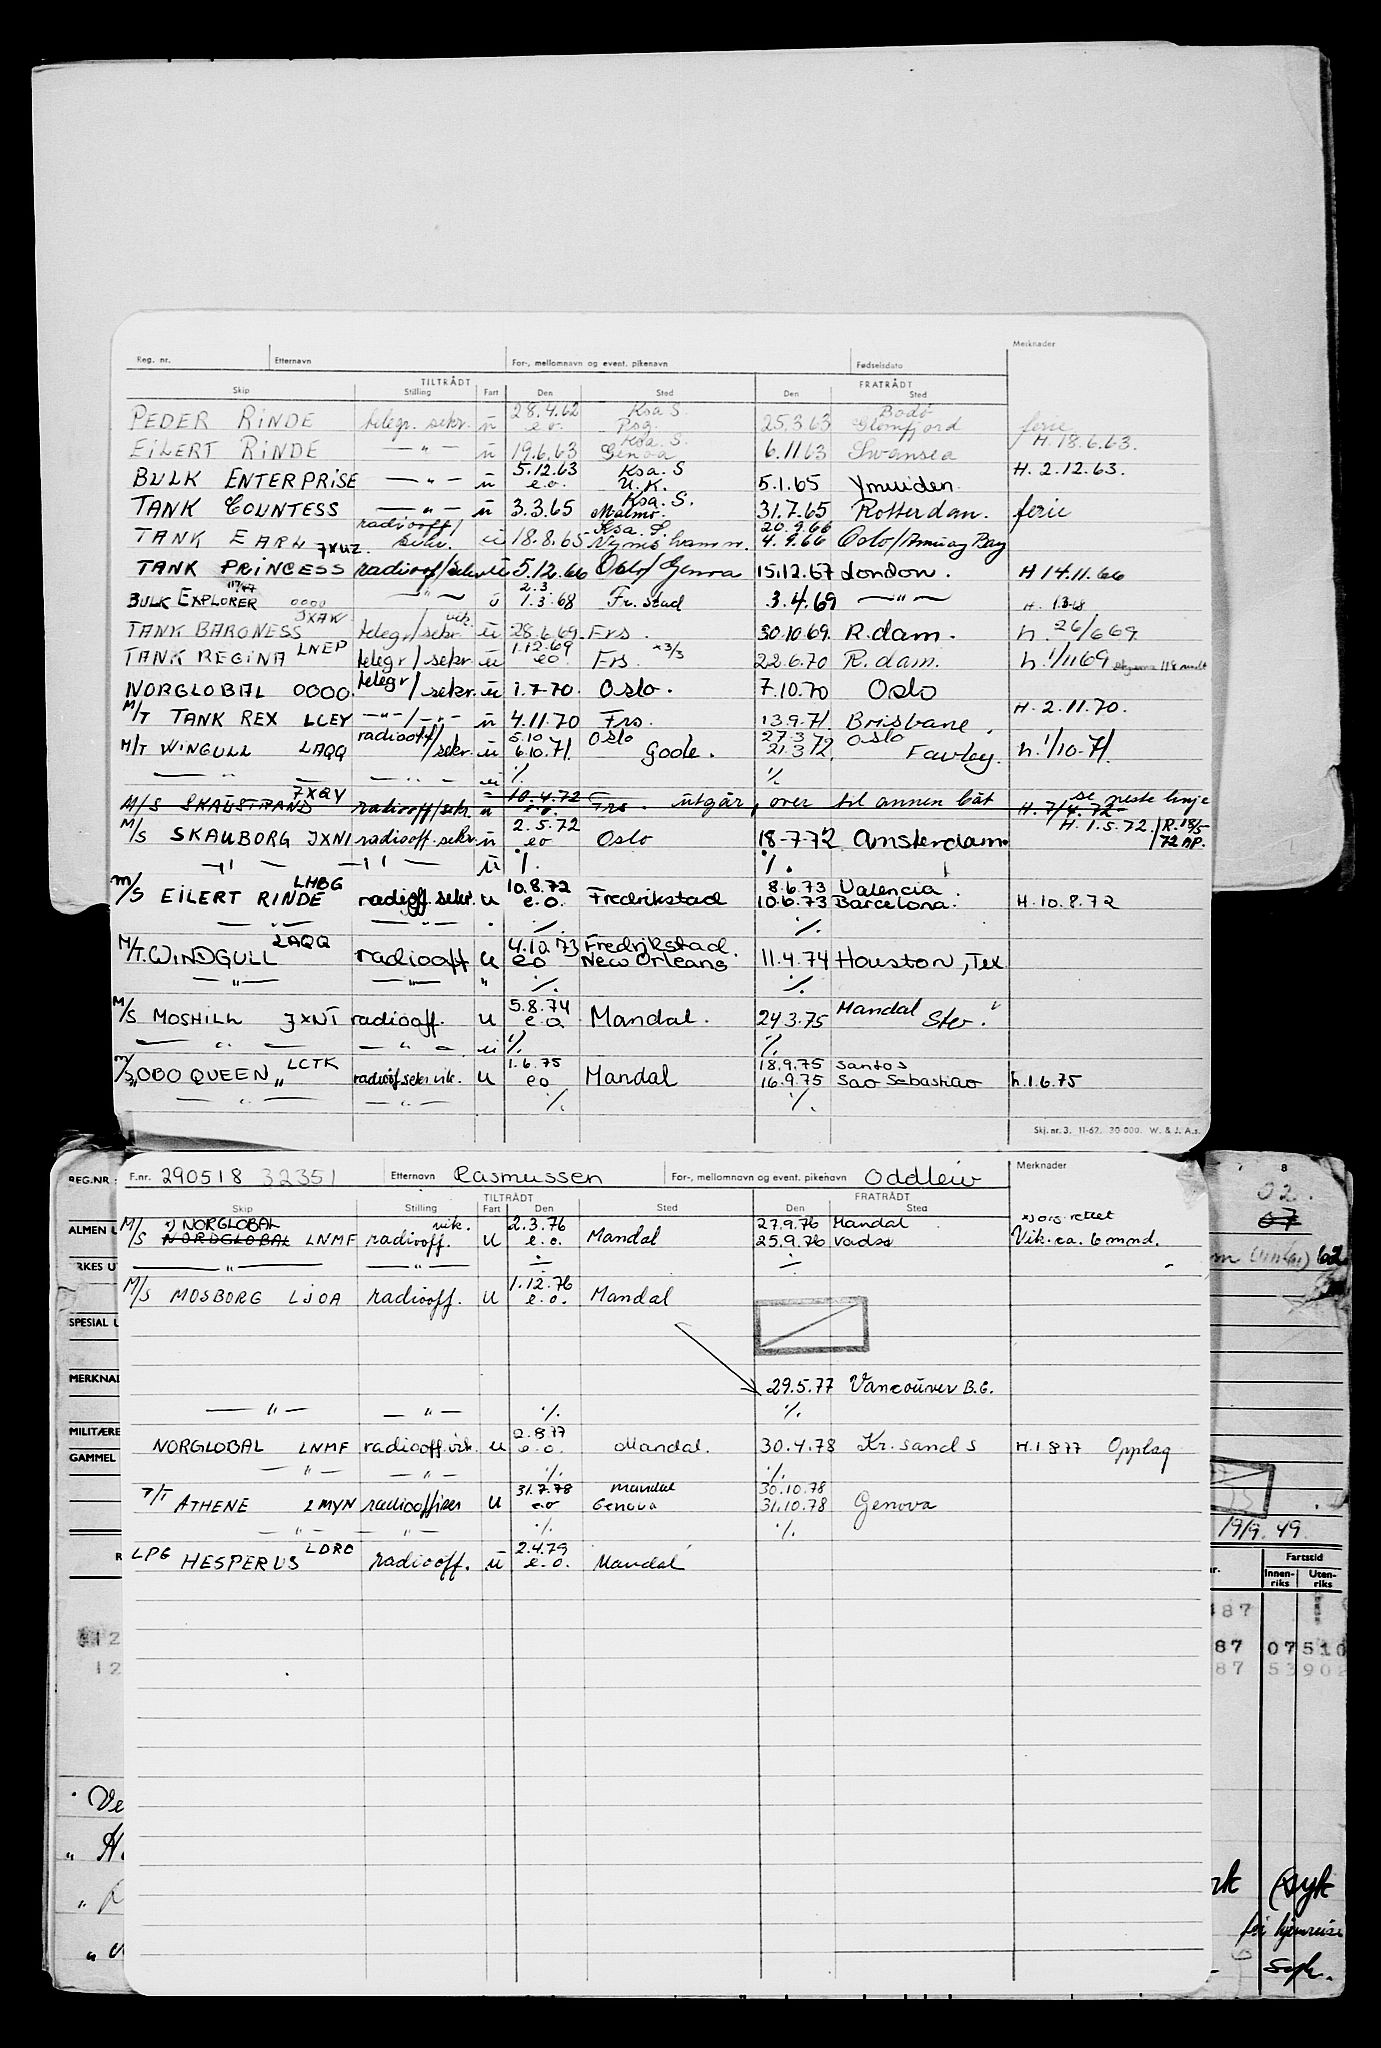 Reg. nr. Etternavn For-, mellomnavn og event. pikenavn Fødselsdato Merknader
TILTRÅDT FRATRÅDT
Skip Stilling Fart Den Sted Den Sted
28.4.62 Ksa S. Bodø
PEDER RINDE telegr. sekr. u e.o. Psg. 25.3.63 Glomfjord ferie
Ksa. S. H. 18.6.63.
EILERT RINDE — " — u 19.6.63 Genoa 6.11.63 Swansea
5.12.63 Ksa. S H. 2.12.63.
BULK ENTERPRISE — " — u e.o. U.K. 5.1.65 Ymuiden
Ksa. S.
TANK COUNTESS — " — u 3.3.65 Malmø 31.7.65 Rotterdam. ferie
radiooff/ Ksa. S. 20.9.66
TANK EARL JXUZ. sekr. u 18.8.65 Nynäshamn. 4.9.66 Oslo/Amuay Bay
TANK PRINCESS radioof/sekr u 5.12.66 Oslo/Genova 15.12.67 London. H 14.11.66
2.3.
BULK EXPLORER 0000 — " — u 1.3.68 Fr.stad 3.4.69 — " — H. 1.3.68
JXAK vik.
TANK BARONESS telegr/sekr. u 28.6.69. Frs. 30.10.69. R.dam. h. 26/6 69
LNEP 1.12.69 x3/3
TANK REGINA telegr/sekr. u eo Frs. 22.6.70 R.dam. h. 1/11 69
NORGLOBAL 0000. telegr/sekr. u 1.7.70. Oslo. 7.10.70 Oslo
M/T TANK REX LCEY — " — / — " — u 4.11.70 Frs. 13.9.71 Brisbane. H. 2.11.70.
radiooff/ 5.10 Oslo 27.3 Oslo
M/T WINGULL LAQQ sekr. u 6.10.71. Goole. 21.3 72. Fawley. h. 1/10-71.
— " — — " — u ·/. ·/.
JXQY 10.4.72 se neste linje
M/S SKAUSTRAND radiooff/sekr. u e.o. Frs. utgår, over til annen båt H. 7/4.72
2.5.72 H. 1.5.72. R. 18/5
M/S SKAUBORG JXNI radiooff. sekr. u eo Oslo 18-7-72 Amsterdam. 72 AP.
— " — — " — u ·/. ·/.
LHBG 10.8.72 8.6.73 Valencia.
M/S EILERT RINDE radiooff. sekr. u e.o. Fredrikstad 10.6.73 Barcelona. H. 10.8.72
— " — — " — ·/. ·/.
LAQQ 4.10.73 Fredrikstad.
M/T. WINDGULL radiooff u eo New Orleans 11.4.74 Houston, Tex
— " — — " — " ·/. ·/.
5.8.74 Mandal
M/S MOSHILL JXNT radiooff. u e.o. Mandal. 24.3.75 Stv.
— " — — " — u ·/. ·/.
LCTK 1.6.75 18.9.75 Santos
M/S "OBO QUEEN" radiooff.sekr.vik. u eo Mandal 16.9.75 Sao Sebastiao h. 1.6.75
— " — — " — ·/. ·/.
Skj. nr. 3. 11-62. 30 000. W. & J. A.s.
F.nr. 290518 32351 Etternavn Rasmussen For-, mellomnavn og event. pikenavn Oddleiv Merknader
TILTRÅDT FRATRÅDT
Skip Stilling Fart Den Sted Den Sted
x) NORGLOBAL vik. 2.3.76 27.9.76 Mandal x) ors. rettet
M/S NORDGLOBAL LNMF radiooff. u e.o. Mandal 25.9.76 Vadsø Vik. ca. 6 mnd.
— " — — " — ·/. ·/.
1.12.76
M/S MOSBORG LJOA radiooff. u e.o. Mandal
29.5.77 Vancouver B.C.
— " — — " — ·/. ·/.
2.8.77
NORGLOBAL LNMF radiooff. vik. u e.o. Mandal. 30.4.78 Kr.sand S H. 1 8 77 Opplag
— " — — " — ·/. ·/.
31.7.78 Mandal 30.10.78
T/T ATHENE LMYN radiooffiser u eo Genova 31.10.78 Genova
— " — — " — ·/. ·/.
LDRC 2.4.79
LPG HESPERUS radiooff. u e.o. Mandal
REG.NR
ALMEN
SPESIAL
MERKNAD
MILITÆRE
GAMMEL
8
02.
07
62
19/9.49.
Fartstid
Innen-riks Uten-riks
87
87 07510
87 53902
syk
for hjemreise
Syk.